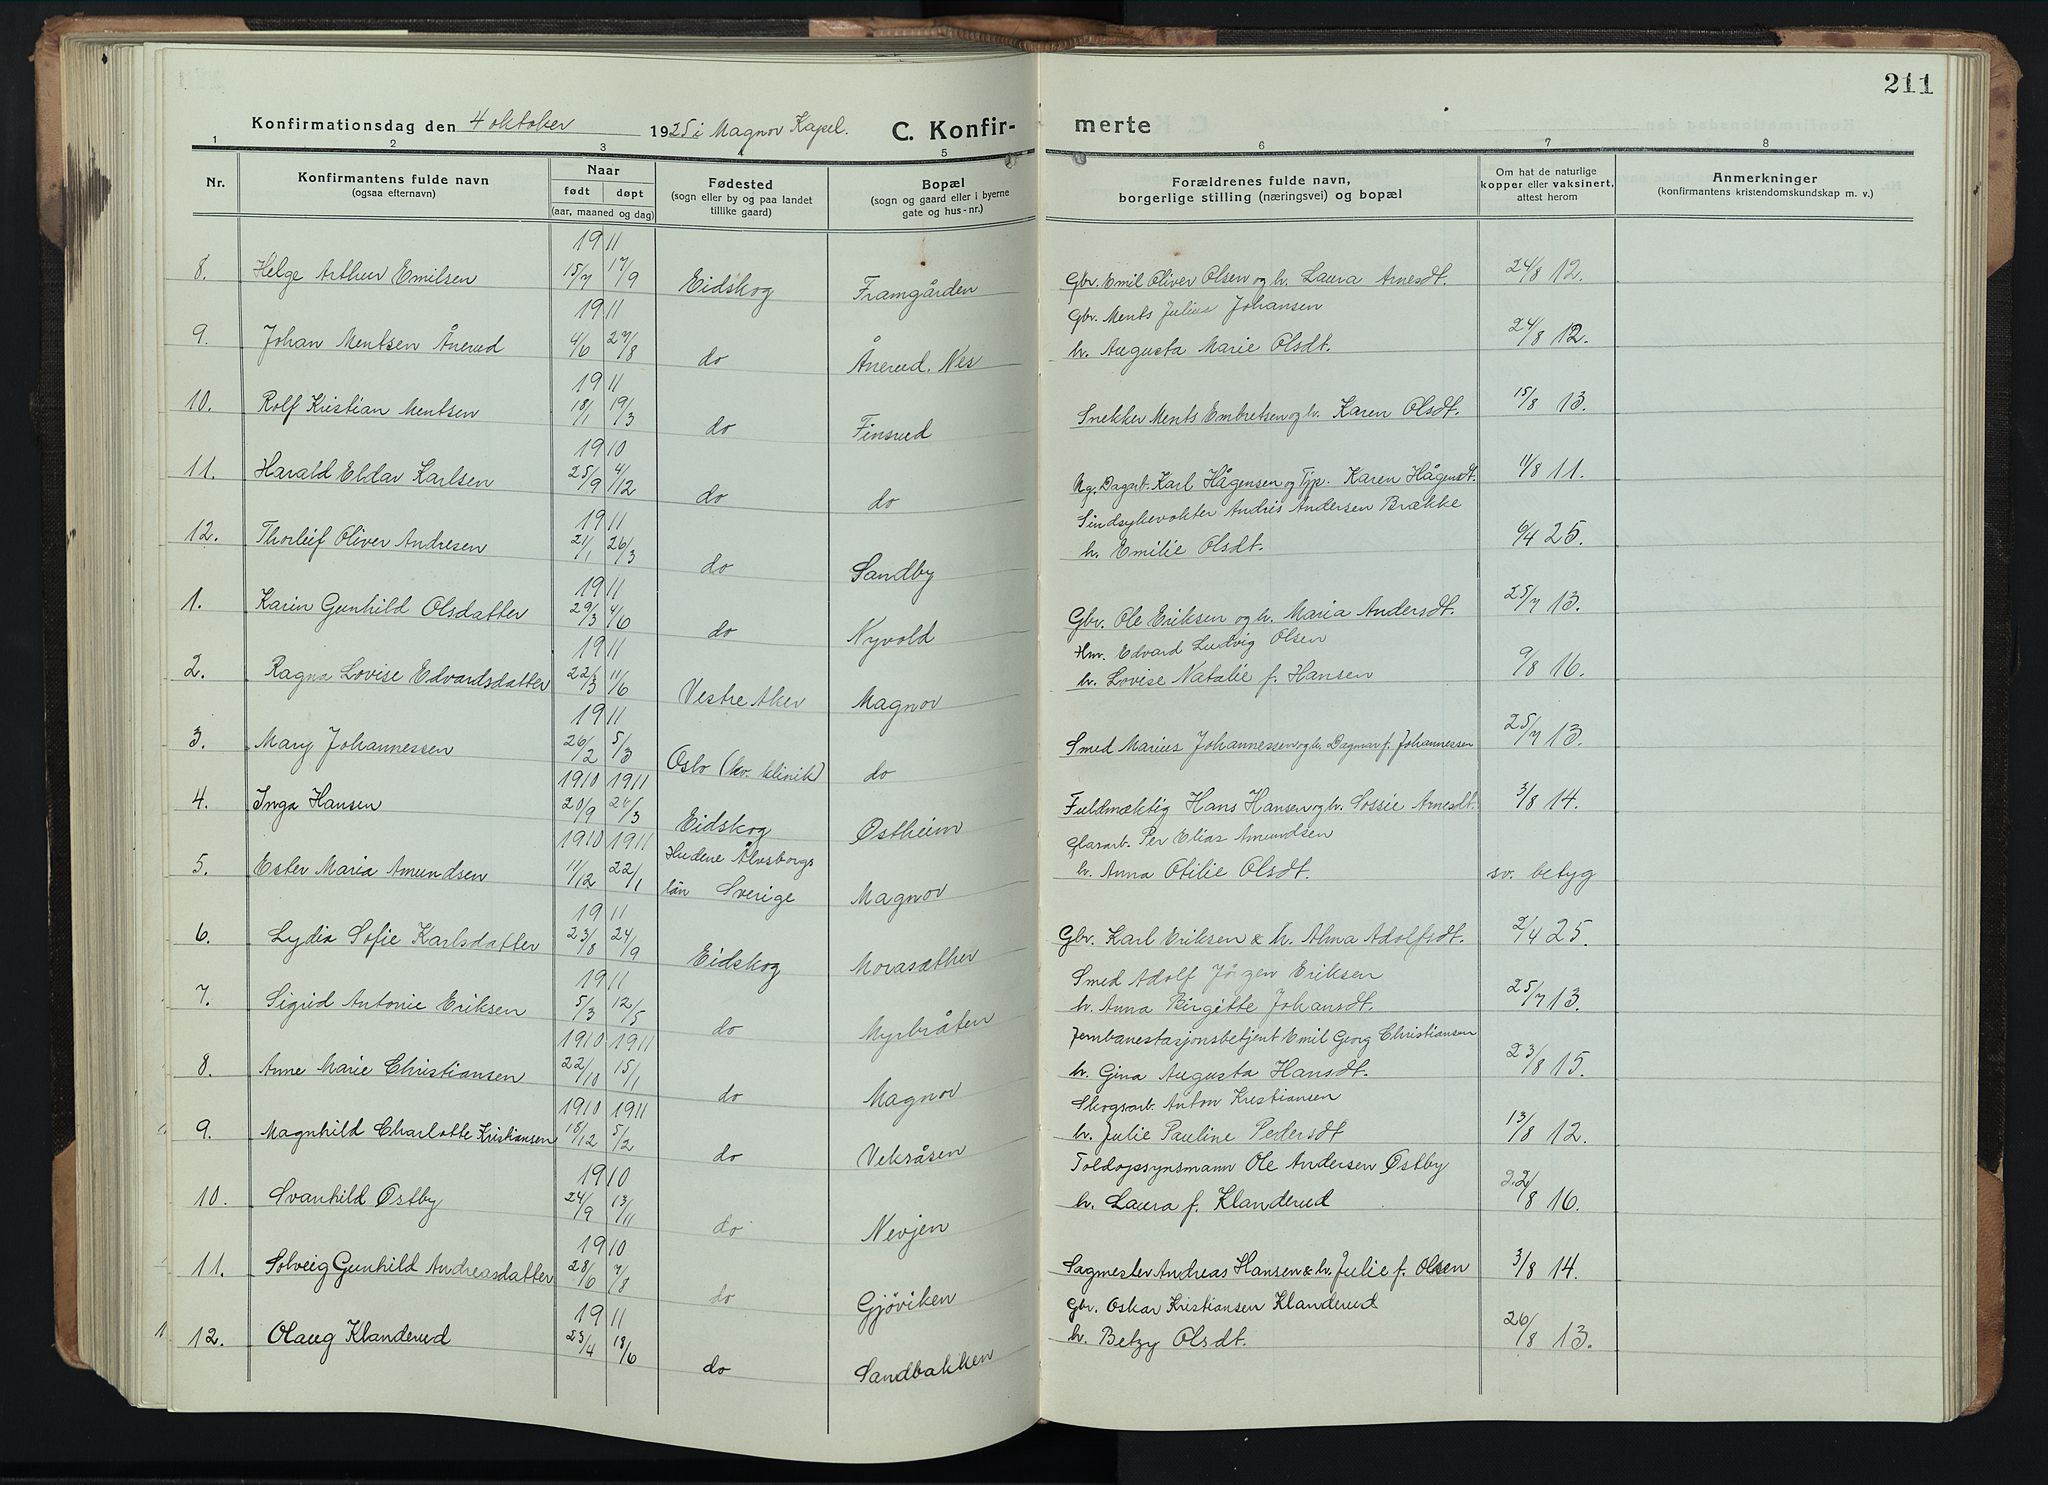 211
Konfirmationsdag den 4 oktober 1925 i Magnor Kapel. C. Konfir- merte
1 2 3 4 5 6 7 8
Nr. Konfirmantens fulde navn (ogsaa efternavn) Naar født døpt (aar, maaned og dag) Fødested (sogn eller by og paa landet tillike gaard) Bopæl (sogn og gaard eller i byerne gate og hus-nr.) Forældrenes fulde navn, borgerlige stilling (næringsvei) og bopæl Om hat de naturlige kopper eller vaksinert, attest herom Anmerkninger (konfirmantens kristendomskundskap m. v.)
1911
8. Helge Arthur Emilsen 15/7 17/9 Eidskog Framgården Gbr. Emil Oliver Olsen og h. Laura Arnesdt. 24/8 12.
1911 Gbr. Ments Julius Johansen
9. Johan Mentsen Ånerud 4/6 27/8 do Ånerud. Nes h. Augusta Marie Olsdt. 24/8 12.
1911
10. Rolf Kristian Mentsen 18/1 19/3 do Finsrud Snekker Ments Embretsen og h. Karen Olsdt. 15/8 13.
1910
11. Harald Eldar Karlsen 25/9 4/12 do do Ug. Dagarb. Karl Hågensen og Tjp. Karen Hågensdt. 11/8 11.
1911 Sindsykevokter Andris Andersen Brække
12. Thorleif Oliver Andresen 21/1 26/3 do Sandby h. Emilie Olsdt. 6/4 25.
1911
1. Karin Gunhild Olsdatter 29/3 4/6 do Nyvold Gbr. Ole Eriksen og h. Maria Andersdt. 25/7 13.
1911 Hmr. Edvard Ludvig Olsen
2. Ragna Lovise Edvardsdatter 22/3 11/6 Vestre Aker Magnor h. Lovise Natalie f. Hansen 9/8 16.
1911
3. Mary Johannessen 26/2 5/3 Oslo (kv. klinik) do Smed Marius Johannessen og h. Dagmar f. Johannessen 25/7 13.
1910 1911
4. Inga Hansen 20/9 /3 Eidskog Østheim Fuldmæktig Hans Hansen og h. Sossie Arnesdt. 3/8 14.
1910 1911 Hudene Ålvsborgs Glasarb. Per Elias Amundsen
5. Ester Maria Amundsen 11/12 22/1 län Sverige Magnor h. Anna Otilie Olsdt. sv. betyg
1911
6. Lydia Sofie Karlsdatter 23/8 24/9 Eidskog Morasæther Gbr. Karl Eriksen & h. Alma Adolfsdt. 2/4 25.
1911 Smed Adolf Jörgen Eriksen
7. Sigrid Antonie Eriksen 5/3 12/5 do Myrbråten h. Anna Birgitte Johansdt. 25/7 13.
1910 1911 Jernbanestasjonsbetjent Emil Georg Christiansen
8. Anne Marie Christiansen 22/10 15/1 do Magnor h. Gina Augusta Hansdt. 23/8 15.
1910 1911 Skogsarb. Anton Kristiansen
9. Magnhild Charlotte Kristiansen 18/12 5/2 do Veksåsen h. Julie Pauline Pedersdt 13/8 12.
1910 Toldopsynsmann Ole Andersen Østby
10. Svanhild Østby 24/9 13/11 do Nevjen h. Laura f. Klanderud 22/8 16.
1910
11. Solveig Gunhild Andreasdatter 28/6 7/8 do Gjöviken Sagmester Andreas Hansen & h. Julie f. Olsen 3/8 14.
1911 Gbr. Oskar Kristiansen Klanderud
12. Olaug Klanderud 23/4 18/6 do Sandbakken h. Betzy Olsdt. 26/8 13.